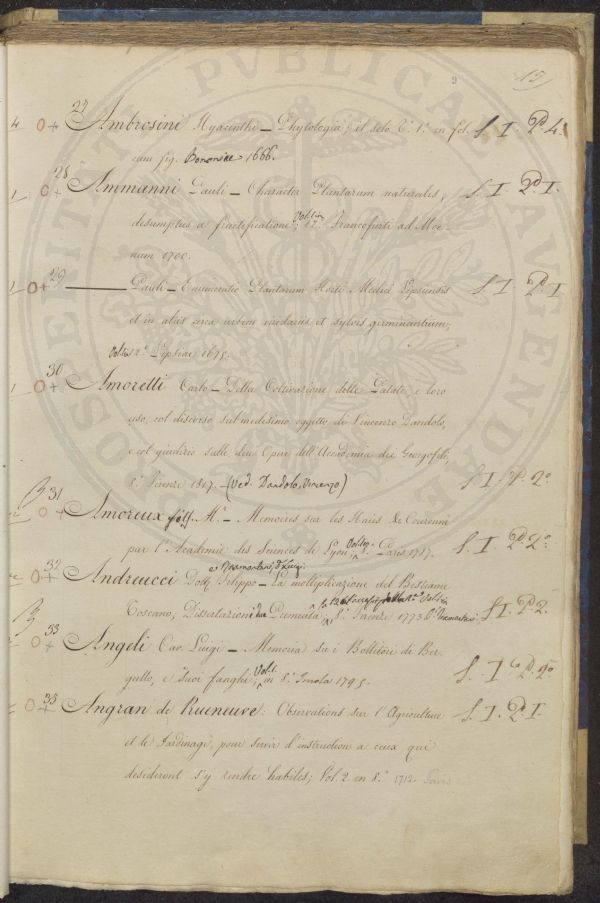 15
27
4 Ambrosini Hyacinthi _ Phytologia; il solo T.º 1.º in fol. S. I. P.d 4.
cum fig. Bononiae 1666.
28
1 Ammanni Pauli _ Character Plantarum naturalis, S. I. P.d 1.
desumptus a fructificatione; Vol. in 12.º Francofurti ad Moe-
num 1700.
29
1 ——— Pauli _ Enumeratio Plantarum Horti Medici Lipsiensis S. I. P. 1
et in aliis circa urbem viridariis et sylvis germinantium;
Lipsiae, 1675.
30
1 Amoretti Carlo _ Della Coltivazione delle Patate, e loro
uso, col discorso sul medesimo oggetto di Vincenzo Dandolo,
e col giudizio sulle due Opere dell'Accademia dei Georgofili;
8.º Firenze 1817. _ (Ved. Dandolo, Vincenzo) S. I. P. 2.º
31
Amoreux fils. M.r _ Memoires sur les Haies
par l'Academie des Sciences de Lyon; 8.º Paris 1787. S. I. P. 2.º
32
Andreucci Dott. Filippo _ La moltiplicazione del Bestiame
Toscano; Dissertazioni due Premiata 8.º Firenze 1773 S. I. P. 2.
33
Angeli Cav. Luigi _ Memoria su i Bollitori di Ber-
gullo, e suoi fanghi; Vol. 1. in 8.º Imola 1795. S. I. P. 2.º
35
Angran de Rueneuve: Observations sur l'Agriculture S. I. P. 1.
et le Jardinage, pour servir d'instruction a ceux qui
desideront s'y rendre habiles; Vol. 2 en 8.º 1712. Paris